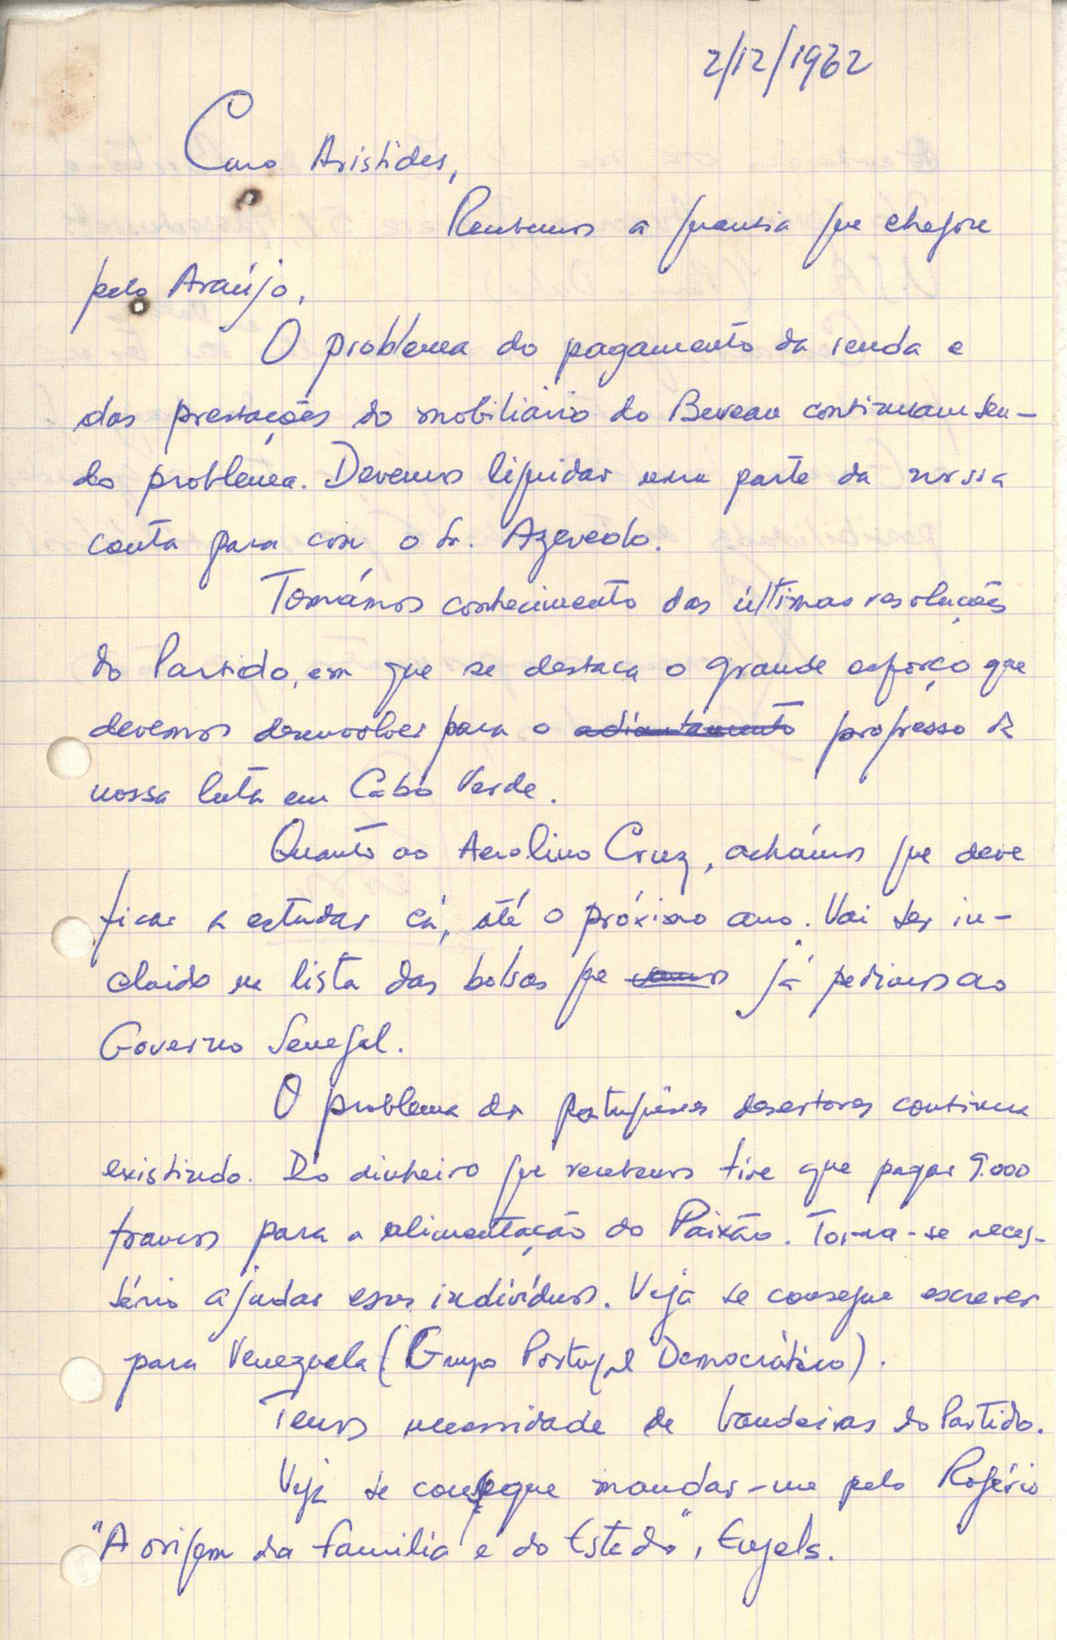 2/12/1962
Caro Aristides,
Recebemos a quantia que chegou
pelo Araújo.
O problema do pagamento da renda e
das prestações do mobiliário do Bureau continuam sen-
do problema. Devemos liquidar uma parte da nossa
conta para com o Dr. Azevedo.
Tomámos conhecimento das últimas resoluções
do Partido, em que se destaca o grande esforço que
devemos desenvolver para o adiantamento progresso da
nossa luta em Cabo Verde.
Quanto ao Aerolino Cruz, achámos que deve
ficar a estudar cá, até o próximo ano. Vai ser in-
cluido na lista das bolsas que vamos já pedimos ao
Governo Senegal.
O problema dos portuguêses desertores continua
existindo. Do dinheiro que recebemos tive que pagar 9.000
francos para a alimentação do Paixão. Torna-se neces-
sário ajudar esses indivíduos. Veja se consegue escrever
para Venezuela (Grupo Portugal Democrático).
Temos necessidade de bandeiras do Partido.
Veja se consegue mandar-me pelo Rogério
"A origem da familia e do Estado", Engels.